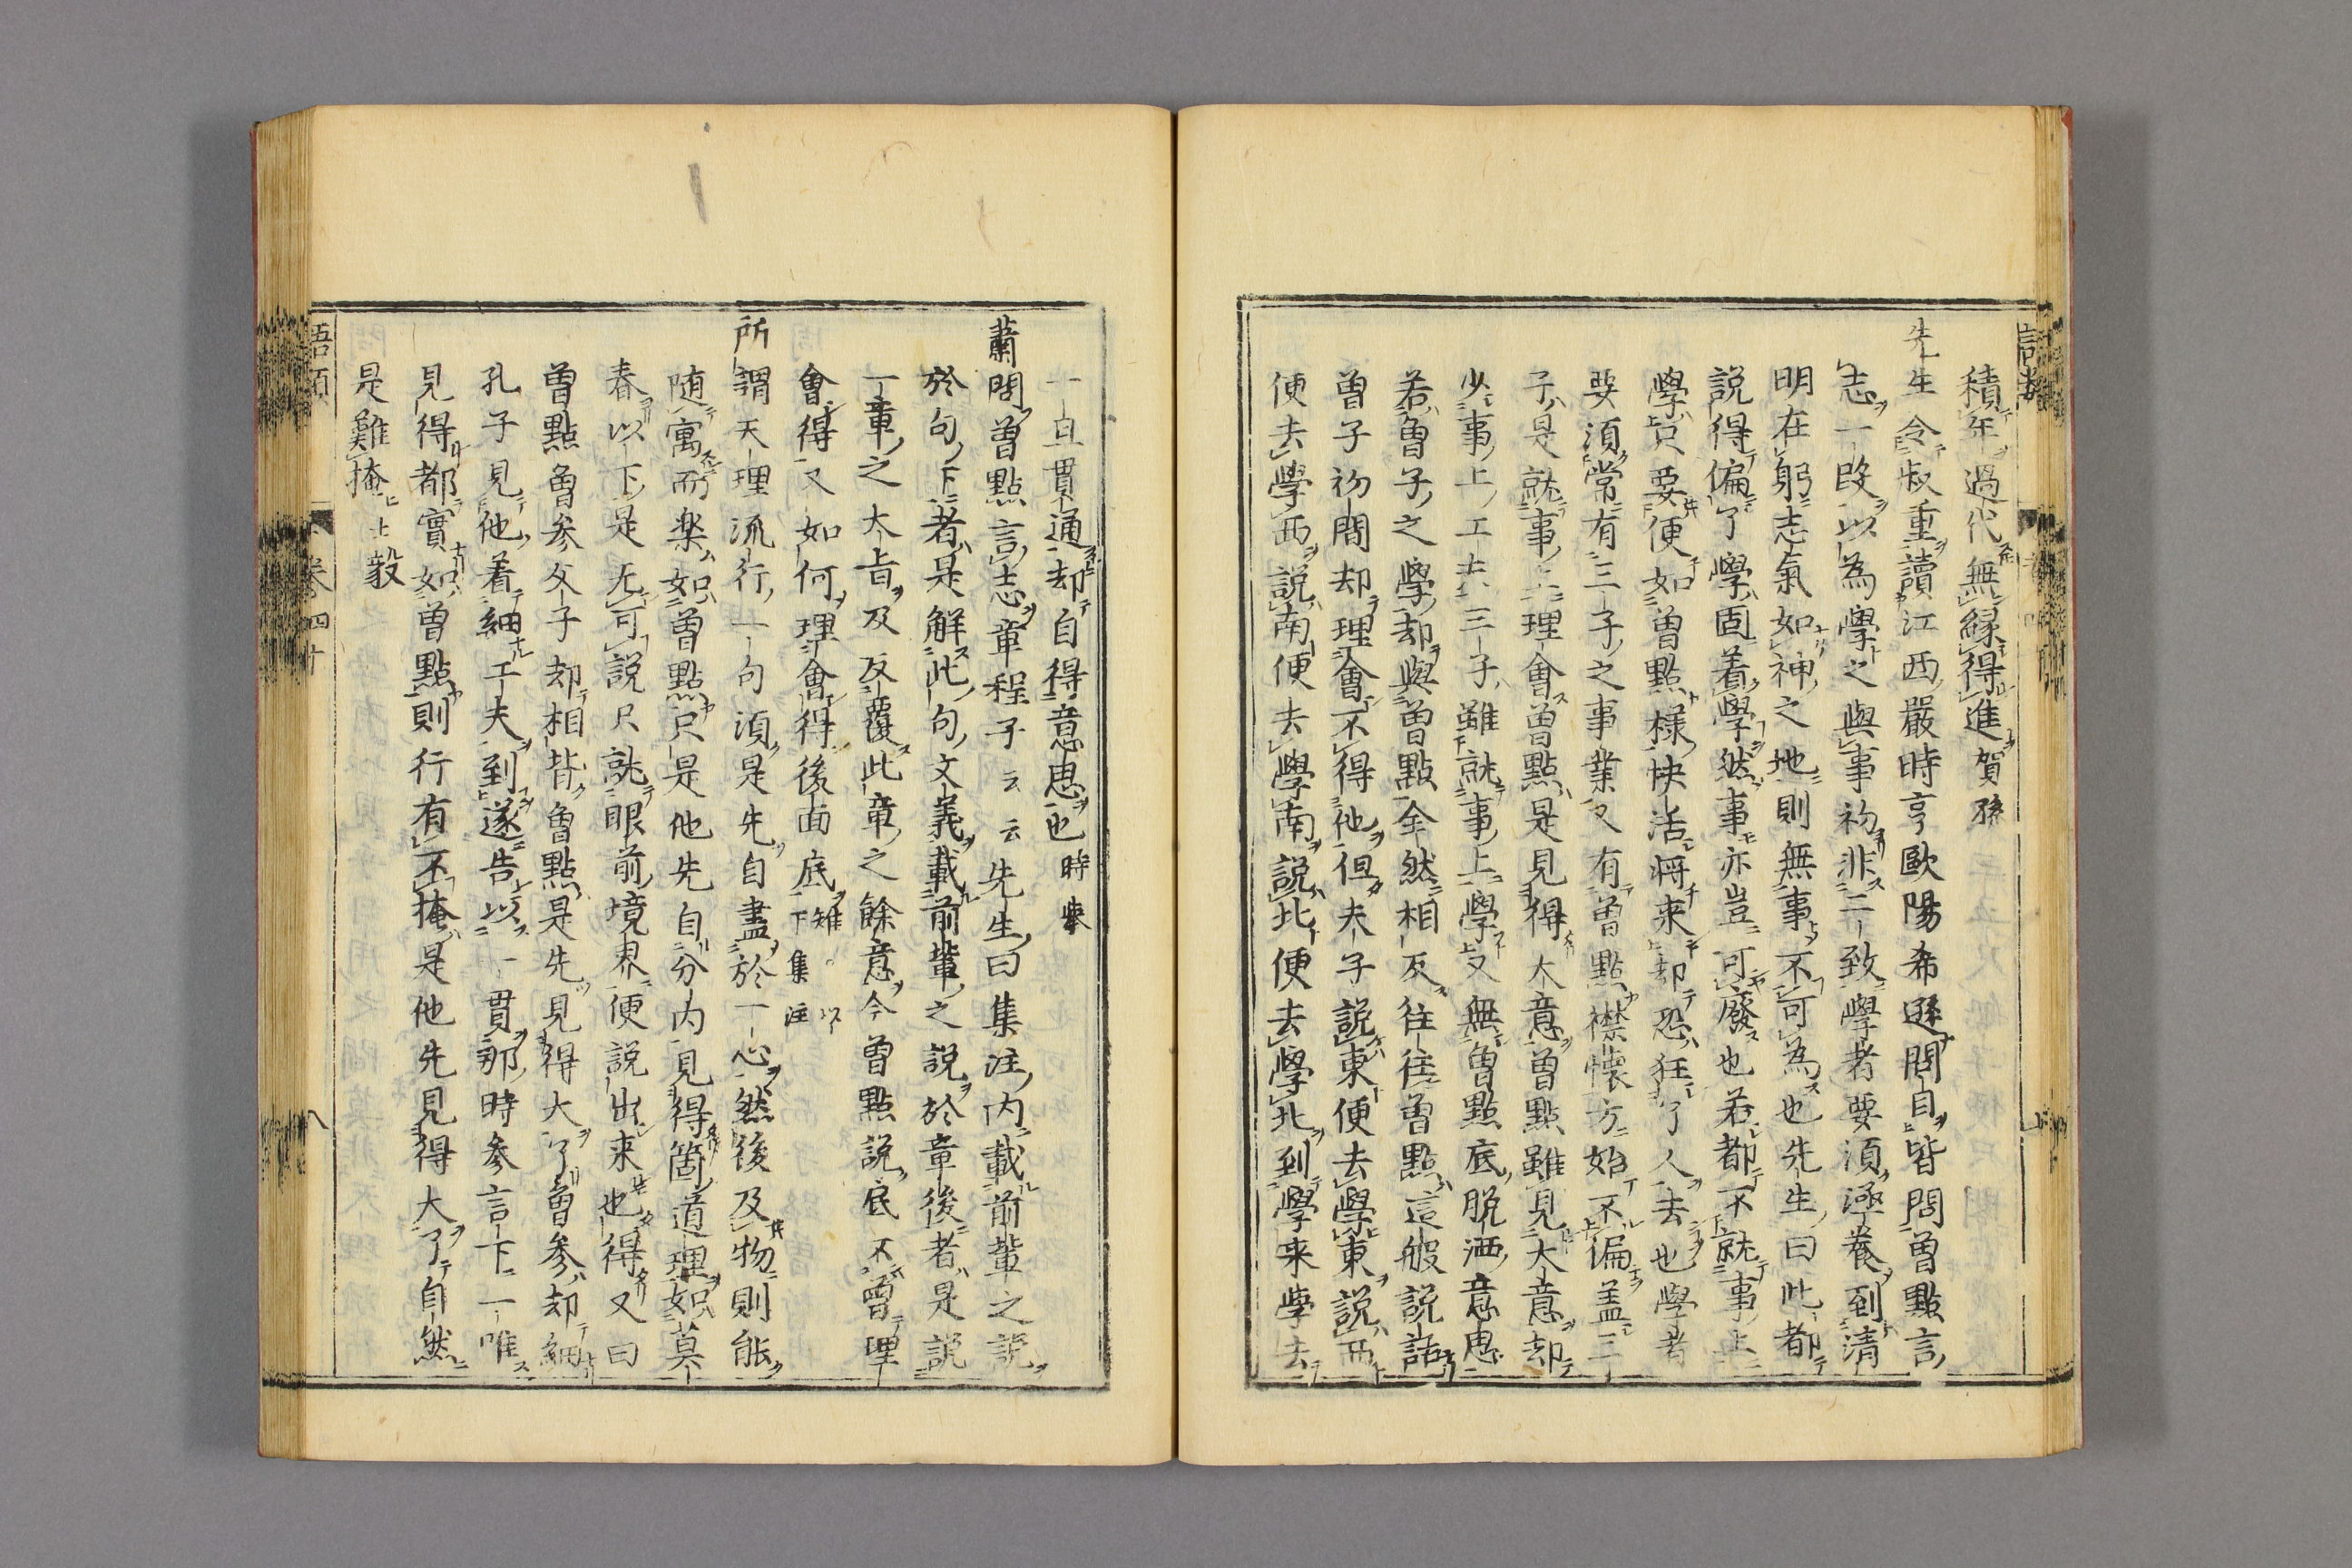 積年過代無縁得進賀孫
先生令叔重讀江西嚴時亨歐陽希遜問目皆問曽點言
志一段以為學之與事初非二致學者要須涵養到清
明在躬志氣如神之地則無事不可為也先生曰此都
説得偏了學固着學然事亦豈可廢也若都不就事上
學只要便如曽點様快活将来却恐狂了人去也學者
要須常有三子之事業又有曽點襟懐方始不偏盖三
子是就事上理會曽點是見得大意曽點雖見大意却
少事上工夫三子雖就事上學又無曽點底脱洒意思
若曽子之學却與曽點全然相反往往曽點這般説話
曽子初間却理會不得他但夫子説東便去學東説西
便去學西説南便去學南説北便去學北到學来學去
一旦貫通却自得意思也時舉
蕭問曽點言志章程子云云先生曰集注内載前輩之説
於句下者是解此句文義載前輩之説於章後者是説
一章之大旨及反覆此章之餘意今曽點説底不曽理
會得又如何理會得後面底雉以下集注
所謂天理流行一句須是先自盡於一心然後及物則能
随寓而楽如曽點只是他先自分内見得箇道理如莫
春以下是无可説只就眼前境界便説出来也得又曰
曽點曽参父子却相背曽點是先見得大了曽参却細
孔子見他着細工夫到遂告以一貫那時参言下一唯
見得都實如曽點則行有不掩是他先見得大了自然
是難掩士毅
語類
卷四十
八